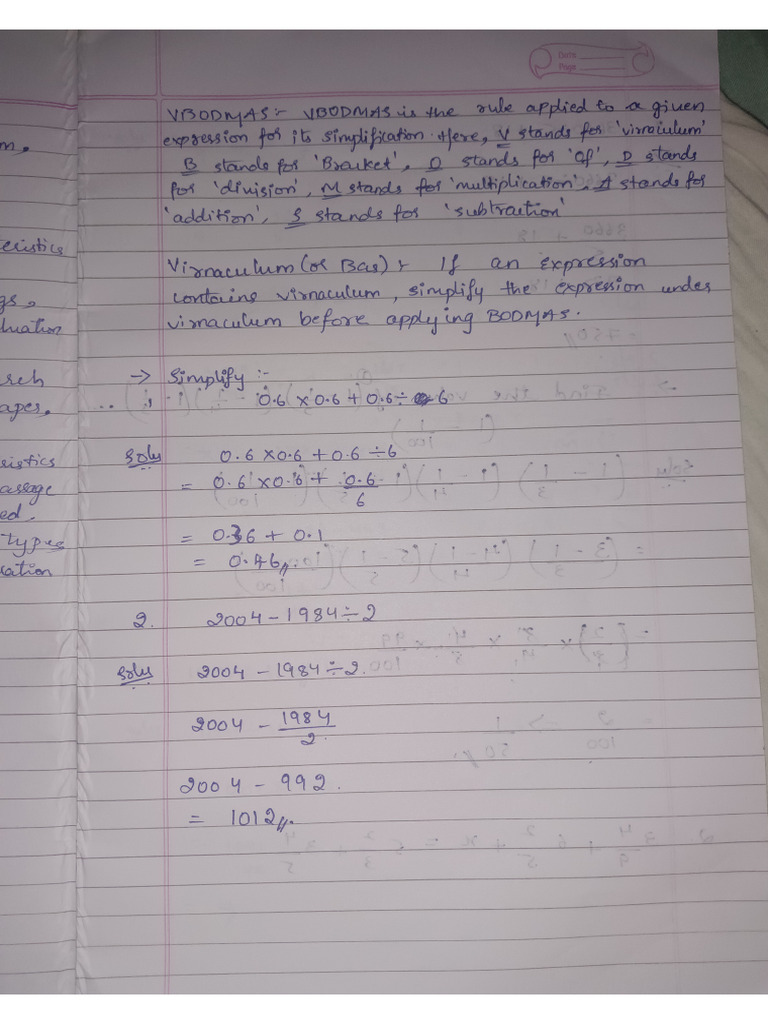 Date
Page
VBODMAS:- VBODMAS is the rule applied to a given
expression for its simplification. Here, V stands for 'virnaculum'
B stands for 'Bracket', O stands for 'Of', D stands
for 'division', M stands for 'multiplication'. A stands for
'addition', S stands for 'subtraction'
Virnaculum (or Bar) :- If an expression
contains virnaculum, simplify the expression under
virnaculum before applying BODMAS.
→ Simplify :-
0.6 × 0.6 + 0.6 ÷ 6
Soln 0.6 × 0.6 + 0.6 ÷ 6
= 0.6 × 0.6 + 0.6/6
= 0.36 + 0.1
= 0.46//.
2. 2004 - 1984 ÷ 2
Soln 2004 - 1984 ÷ 2.
2004 - 1984/2.
2004 - 992.
= 1012//.
teristics
gs,
luation
apes.
eristics
assage
ed.
types
cation